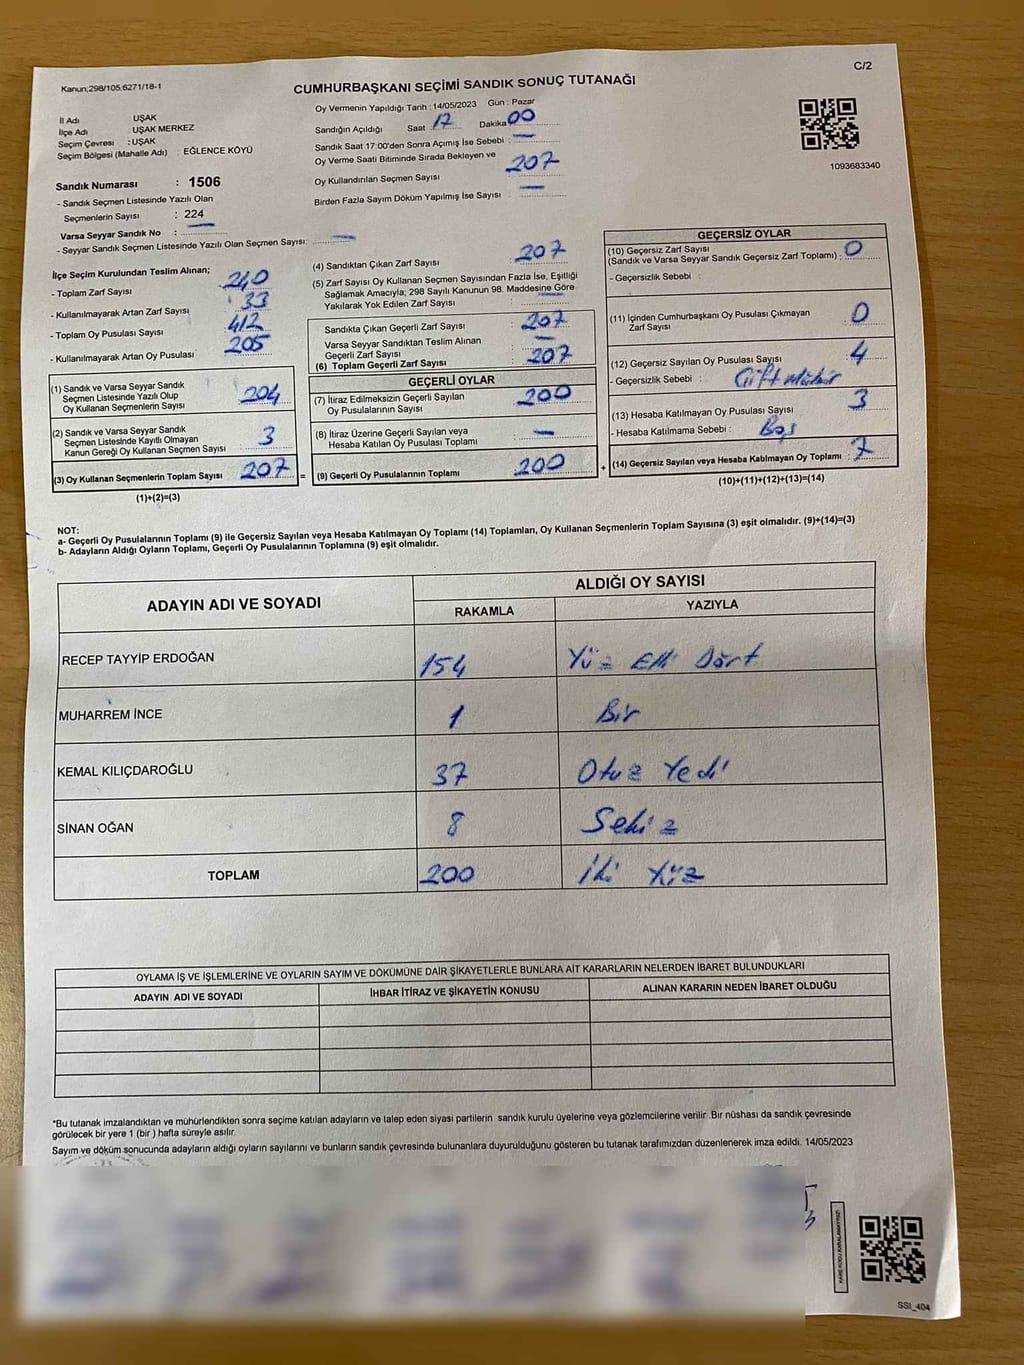 C/2
Kanun;298/105,6271/18-1
CUMHURBAŞKANI SEÇİMİ SANDIK SONUÇ TUTANAĞI
İl Adı UŞAK
İlçe Adı : UŞAK MERKEZ
Seçim Çevresi : UŞAK
Seçim Bölgesi (Mahalle Adı) : EĞLENCE KÖYÜ
Oy Vermenin Yapıldığı Tarih : 14/05/2023 Gün : Pazar
Sandığın Açıldığı Saat : 17 Dakika 00
Sandık Saat 17:00'den Sonra Açımış İse Sebebi : —
Oy Verme Saati Bitiminde Sırada Bekleyen ve
Oy Kullandırılan Seçmen Sayısı : 207
Birden Fazla Sayım Döküm Yapılmış İse Sayısı : —
1093683340
Sandık Numarası : 1506
- Sandık Seçmen Listesinde Yazılı Olan
Seçmenlerin Sayısı : 224
Varsa Seyyar Sandık No : —
- Seyyar Sandık Seçmen Listesinde Yazılı Olan Seçmen Sayısı: —
İlçe Seçim Kurulundan Teslim Alınan;
- Toplam Zarf Sayısı 240
- Kullanılmayarak Artan Zarf Sayısı 33
- Toplam Oy Pusulası Sayısı 412
- Kullanılmayarak Artan Oy Pusulası 205
(1) Sandık ve Varsa Seyyar Sandık
Seçmen Listesinde Yazılı Olup
Oy Kullanan Seçmenlerin Sayısı : 204
(2) Sandık ve Varsa Seyyar Sandık
Seçmen Listesinde Kayıtlı Olmayan
Kanun Gereği Oy Kullanan Seçmen Sayısı : 3
(3) Oy Kullanan Seçmenlerin Toplam Sayısı : 207 =
(1)+(2)=(3)
(4) Sandıktan Çıkan Zarf Sayısı : 207
(5) Zarf Sayısı Oy Kullanan Seçmen Sayısından Fazla İse, Eşitliği
Sağlamak Amacıyla; 298 Sayılı Kanunun 98. Maddesine Göre
Yakılarak Yok Edilen Zarf Sayısı : —
Sandıkta Çıkan Geçerli Zarf Sayısı : 207
Varsa Seyyar Sandıktan Teslim Alınan
Geçerli Zarf Sayısı : —
(6) Toplam Geçerli Zarf Sayısı : 207
GEÇERLİ OYLAR
(7) İtiraz Edilmeksizin Geçerli Sayılan
Oy Pusulalarının Sayısı : 200
(8) İtiraz Üzerine Geçerli Sayılan veya
Hesaba Katılan Oy Pusulası Toplamı : —
(9) Geçerli Oy Pusulalarının Toplamı : 200 +
GEÇERSİZ OYLAR
(10) Geçersiz Zarf Sayısı
(Sandık ve Varsa Seyyar Sandık Geçersiz Zarf Toplamı) : 0
- Geçersizlik Sebebi :
(11) İçinden Cumhurbaşkanı Oy Pusulası Çıkmayan
Zarf Sayısı : 0
(12) Geçersiz Sayılan Oy Pusulası Sayısı : 4
- Geçersizlik Sebebi : Çift Mühür
(13) Hesaba Katılmayan Oy Pusulası Sayısı : 3
- Hesaba Katılmama Sebebi : Boş
(14) Geçersiz Sayılan veya Hesaba Katılmayan Oy Toplamı : 7
(10)+(11)+(12)+(13)=(14)
NOT:
a- Geçerli Oy Pusulalarının Toplamı (9) ile Geçersiz Sayılan veya Hesaba Katılmayan Oy Toplamı (14) Toplamları, Oy Kullanan Seçmenlerin Toplam Sayısına (3) eşit olmalıdır. (9)+(14)=(3)
b- Adayların Aldığı Oyların Toplamı, Geçerli Oy Pusulalarının Toplamına (9) eşit olmalıdır.
ADAYIN ADI VE SOYADI ALDIĞI OY SAYISI
RAKAMLA YAZIYLA
RECEP TAYYİP ERDOĞAN 154 Yüz Elli Dört
MUHARREM İNCE 1 Bir
KEMAL KILIÇDAROĞLU 37 Otuz Yedi
SİNAN OĞAN 8 Sekiz
TOPLAM 200 İki Yüz
OYLAMA İŞ VE İŞLEMLERİNE VE OYLARIN SAYIM VE DÖKÜMÜNE DAİR ŞİKAYETLERLE BUNLARA AİT KARARLARIN NELERDEN İBARET BULUNDUKLARI
ADAYIN ADI VE SOYADI İHBAR İTİRAZ VE ŞİKAYETİN KONUSU ALINAN KARARIN NEDEN İBARET OLDUĞU
*Bu tutanak imzalandıktan ve mühürlendikten sonra seçime katılan adayların ve talep eden siyasi partilerin sandık kurulu üyelerine veya gözlemcilerine verilir. Bir nüshası da sandık çevresinde
görülecek bir yere 1 (bir ) hafta süreyle asılır.
Sayım ve döküm sonucunda adayların aldığı oyların sayılarını ve bunların sandık çevresinde bulunanlara duyurulduğunu gösteren bu tutanak tarafımızdan düzenlenerek imza edildi. 14/05/2023
KARE KODU KARALAMAYINIZ!
SSI_404